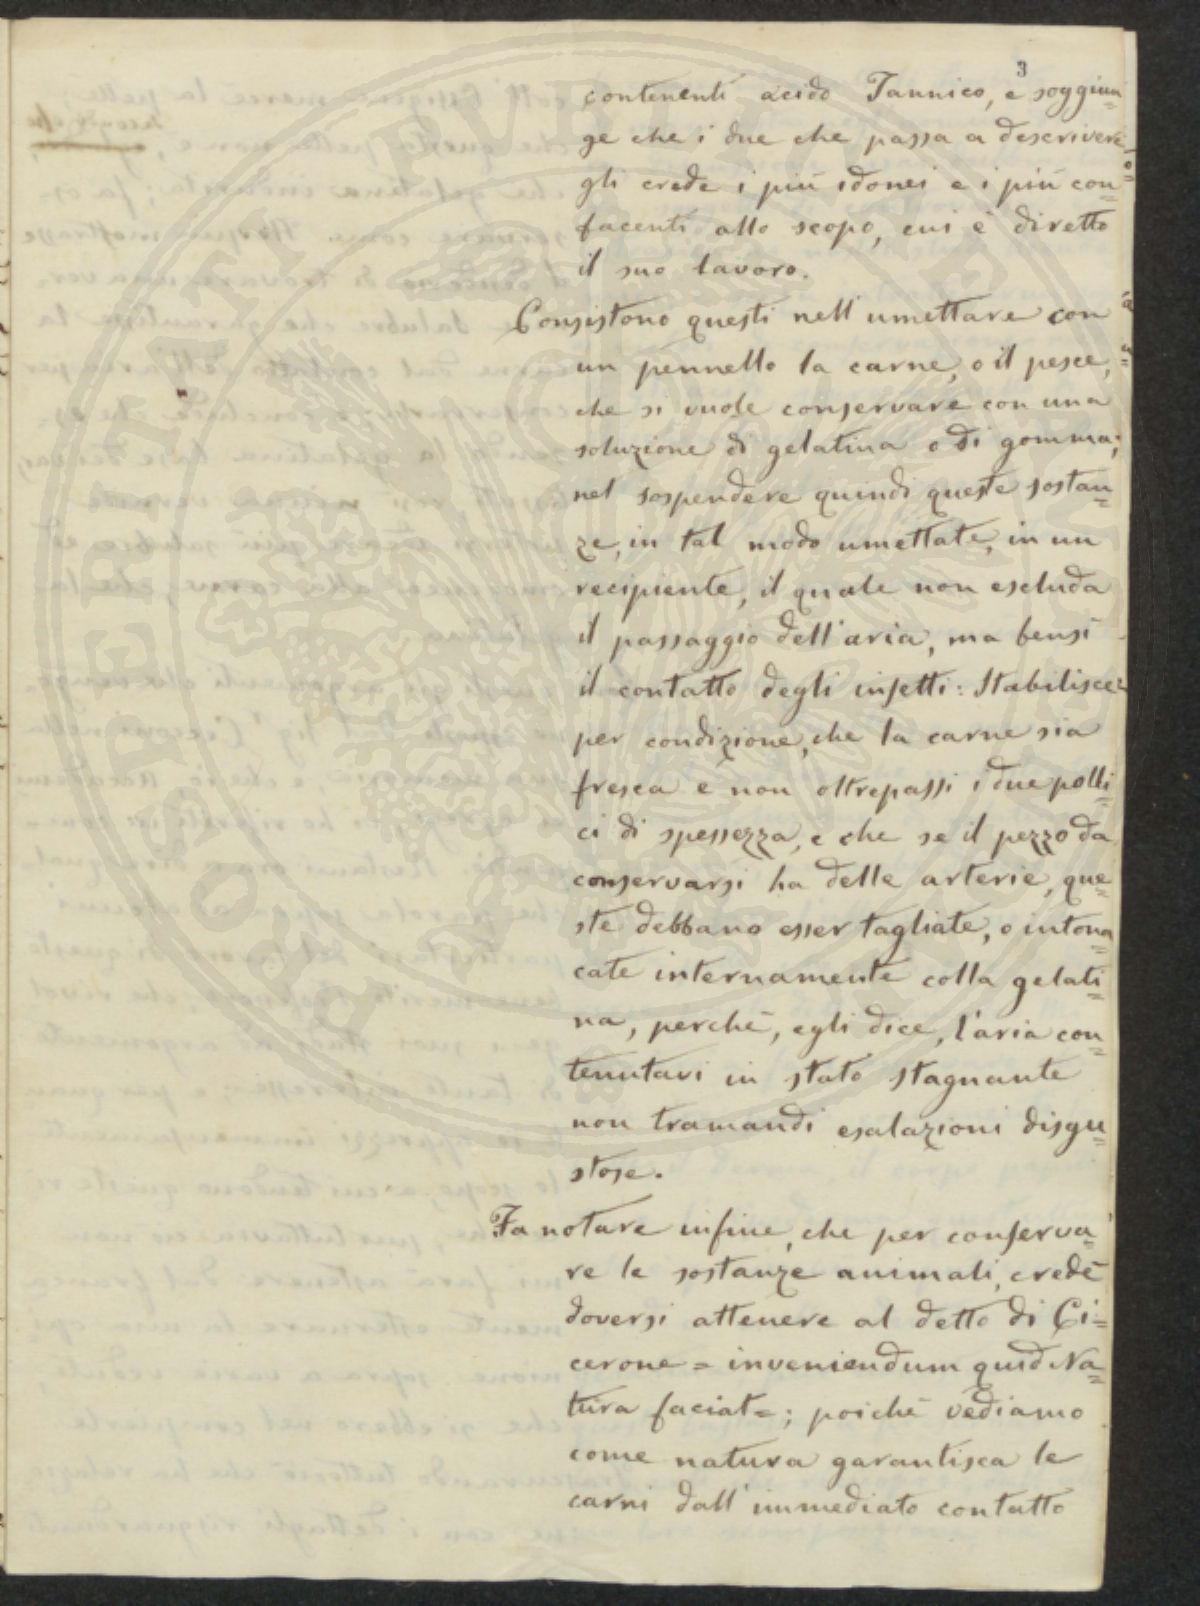 3
contenenti acido Tannico, e soggiun=
ge che i due che passa a descrivere
gli crede i più idonei e i più con=
facenti allo scopo, cui è diretto
il suo lavoro.
Consistono questi nell'umettare con
un pennello la carne, o il pesce,
che si vuole conservare con una
soluzione di gelatina o di gomma;
nel sospendere quindi queste sostan=
ze, in tal modo umettate, in un
recipiente, il quale non escluda
il passaggio dell'aria, ma bensì
il contatto degli insetti: Stabilisce
per condizione, che la carne sia
fresca e non oltrepassi i due polli=
ci di spessezza, e che se il pezzo da
conservarsi ha delle arterie, que=
ste debbano esser tagliate, o intona=
cate internamente colla gelati=
na, perchè, egli dice, l'aria con=
tenutavi in stato stagnante
non tramandi esalazioni disgu=
stose.
Fa notare infine, che per conserva=
re le sostanze animali, crede
doversi attenere al detto di Ci=
cerone = inveniendum quid Na=
tura faciat =; poichè vediamo
come natura garantisca le
carni dall'immediato contatto
PROSPERITATI PVBLICAE